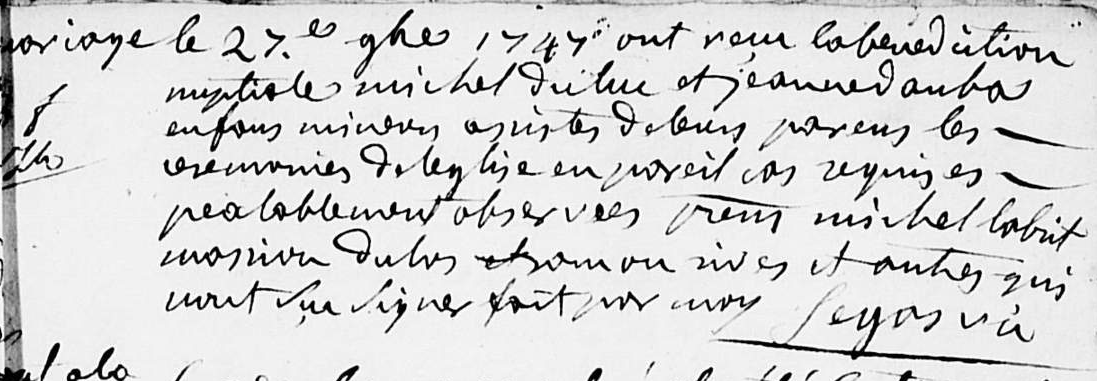 mariage le 27.e 9bre 1747 ont recu labenediction
nuptiale michel duluc et jeanne daubas
enfans mineurs asistes deleurs parens les
ceremonies deleglise en pareil cas requises
prealablement observées presens michel labrit
dubos et ramon rives et autres qui
nont sçu signer fait par moy